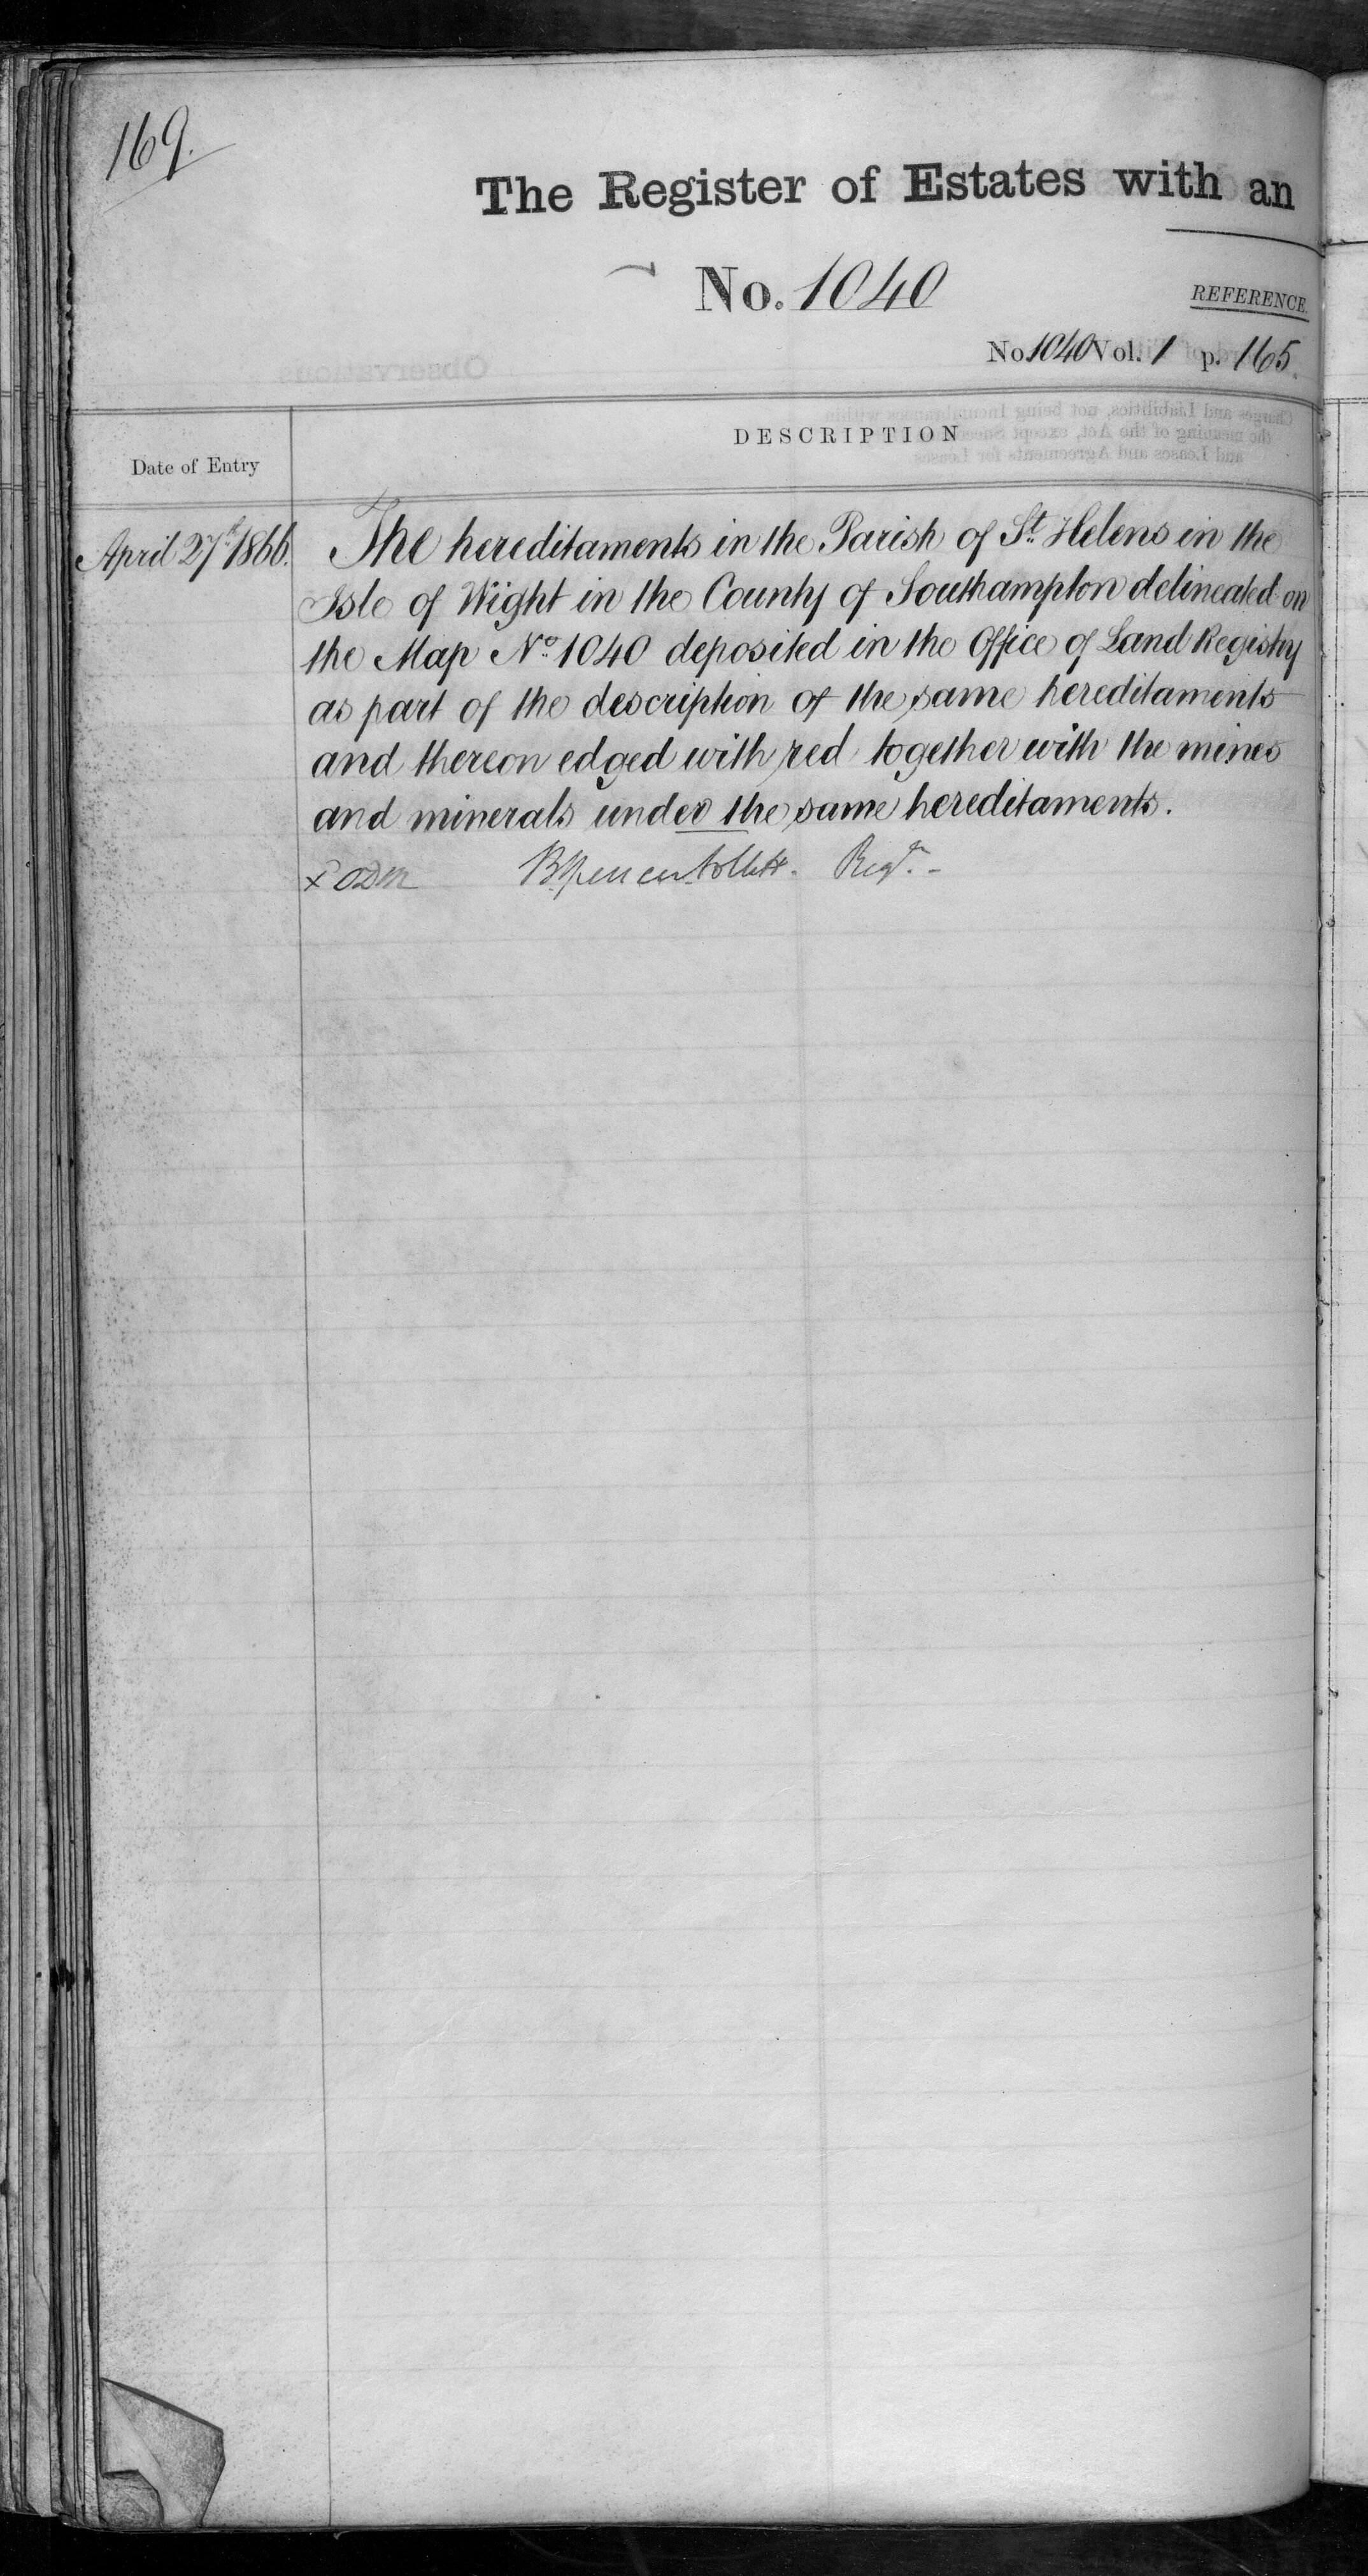 169.
The Register of Estates with an
No. 1040
REFERENCE.
No 1040 Vol. 1 p. 165.
Date of Entry
DESCRIPTION
April 27th 1866.
The hereditaments in the Parish of St. Helens in the
Isle of Wight in the County of Southampton delineated on
the Map No. 1040 deposited in the Office of Land Registry
as part of the description of the same hereditaments
and thereon edged with red together with the mines
and minerals under the same hereditaments.
Regr.